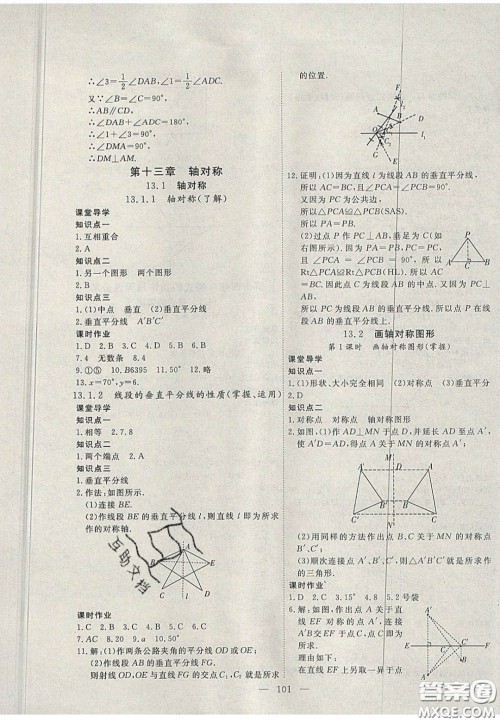 ∴∠3=1/2∠DAB,∠1=1/2∠ADC.
又∵∠B=∠C=90°,
∴AB∥CD.
∴∠DAB+∠ADC=180°,
∴∠DMA=90°.
∴DM⊥AM.
第十三章 轴对称
13.1 轴对称
13.1.1 轴对称(了解)
课堂导学
知识点一
1.互相重合
2.C
知识点二
1.另一个图形 两个图形
2.C
知识点三
1.(1)中点 垂直 (2)垂直平分线
2.垂直平分线 A′B′C′
课时作业
1.C 2.D 3.D 4.A 5.B 6.B
7.4 无数条 8.4
9.①⑤ 10.B6395 11.50° 12.略
13.x=70°,y=6.
13.1.2 线段的垂直平分线的性质(掌握、运用)
课堂导学
知识点一
1.相等 2.7,8
知识点二
1.两个端点 2.C
知识点三
1.垂直平分线
2.作法:如图所示.
(1)连接BE.
(2)作线段BE的垂直平分线l,则直线l即为所求
作的对称轴.
A
B
E
C
l
D
互助文档
课时作业
1.C 2.B 3.C 4.D 5.D 6.B
7.AC 8.20 9.a 10.50°
11.解:(1)作两条公路夹角的平分线OD或OE;
(2)作线段FG的垂直平分线FG,
则射线OD,OE与直线FG的交点C₁,C₂就是所求
的位置.
12.证明:(1)因为直线l为线段AB的垂直平分线,
所以AC=BC,且∠PCA=∠PCB=90°.
又因为PC为公共边,
所以△PCA≌△PCB(SAS).
所以PA=PB.
(2)过点P作PC⊥AB,垂足为C(如
右图所示).因为PA=PB,PC=PC,
且∠PCA=∠PCB=90°,所以
Rt△PCA≌Rt△PCB(HL).所以AC
=BC.因此点C为线段AB的中点.
所以PC为线段AB的垂直平分线.所以点P在线段
AB的垂直平分线上.
P
A
C
B
13.2 画轴对称图形
第1课时 画轴对称图形(掌握)
课堂导学
知识点一
1.(1)形状、大小完全相同 (2)对称点 (3)垂直平分
知识点二
1.对称点 对称点 轴对称图形
2.如图,(1)作AD⊥MN于点D,延长AD至点A′,
使A′D=AD,得点A关于MN的对称点A′;
M
A
D
A′
B′
B
C′
C
N
(2)用同样的方法作出点B,C关于MN的对称点
B′、C′;
(3)顺次连接点A′、B′、C′,则△A′B′C′即为所求作
的三角形.
课时作业
1.C 2.D 3.15° 4.8 5.2号袋
6.解:如图,作出点A关于
直线EF对称的点A′,
则直线EF即为所求.
在直线EF上另取一异于点
· 101 ·
答案圈
MXQE.COM